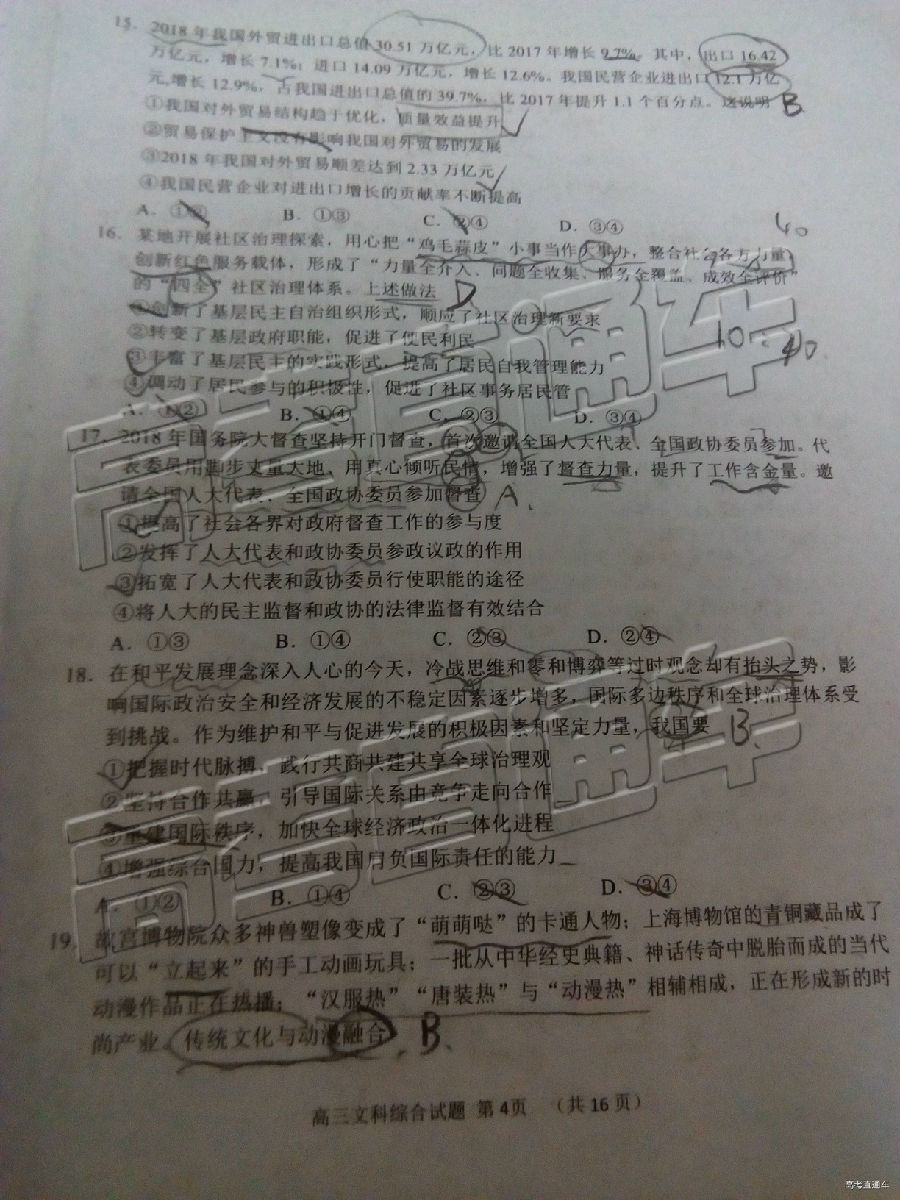 15. 2018 年我国外贸进出口总值 30.51 万亿元，比 2017 年增长 9.7%。其中，出口 16.42
万亿元，增长 7.1%；进口 14.09 万亿元，增长 12.6%。我国民营企业进出口 12.1 万亿
元,增长 12.9%，占我国进出口总值的 39.7%，比 2017 年提升 1.1 个百分点。这说明 B
①我国对外贸易结构趋于优化，质量效益提升
②贸易保护主义没有影响我国对外贸易的发展
③2018 年我国对外贸易顺差达到 2.33 万亿元
④我国民营企业对进出口增长的贡献率不断提高
A. ①② B. ①③ C. ②④ D. ③④
40
16. 某地开展社区治理探索，用心把“鸡毛蒜皮”小事当作大事办，整合社会各方力量，
创新红色服务载体，形成了“力量全介入、问题全收集、服务全覆盖、成效全评价”
的“四全”社区治理体系。上述做法 D
①创新了基层民主自治组织形式，顺应了社区治理新要求
②转变了基层政府职能，促进了便民利民
10. 40
③丰富了基层民主的实践形式，提高了居民自我管理能力
④调动了居民参与的积极性，促进了社区事务居民管
A. ①② B. ①④ C. ②③ D. ③④
17. 2018 年国务院大督查坚持开门督查，首次邀请全国人大代表、全国政协委员参加。代
表委员用脚步丈量大地、用真心倾听民情，增强了督查力量，提升了工作含金量。邀
请全国人大代表、全国政协委员参加督查 A.
①提高了社会各界对政府督查工作的参与度
②发挥了人大代表和政协委员参政议政的作用
③拓宽了人大代表和政协委员行使职能的途径
④将人大的民主监督和政协的法律监督有效结合
A. ①③ B. ①④ C. ②③ D. ②④
18. 在和平发展理念深入人心的今天，冷战思维和零和博弈等过时观念却有抬头之势，影
响国际政治安全和经济发展的不稳定因素逐步增多，国际多边秩序和全球治理体系受
到挑战。作为维护和平与促进发展的积极因素和坚定力量，我国要 B.
①把握时代脉搏，践行共商共建共享全球治理观
②坚持合作共赢，引导国际关系由竞争走向合作
③重建国际秩序，加快全球经济政治一体化进程
④增强综合国力，提高我国肩负国际责任的能力
A. ①② B. ①④ C. ②③ D. ③④
19. 故宫博物院众多神兽塑像变成了“萌萌哒”的卡通人物；上海博物馆的青铜藏品成了
可以“立起来”的手工动画玩具；一批从中华经史典籍、神话传奇中脱胎而成的当代
动漫作品正在热播；“汉服热”“唐装热”与“动漫热”相辅相成，正在形成新的时
尚产业。传统文化与动漫融合 B.
高三文科综合试题 第 4页 （共 16 页）
高考直通车
高考直通车
高考直通车